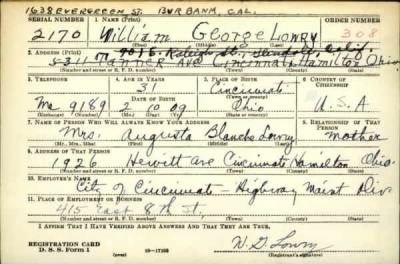 1638 EVERGREEN ST. BURBANK, CAL.
SERIAL NUMBER 1. NAME (Print) ORDER NUMBER
2170 William George Lowry 308
(First) (Middle) (Last)
901 E. Raleigh St., Glendale, Calif.
2. ADDRESS (Print)
5311 Tanner Ave Cincinnati, Hamilton Ohio
(Number and street or R. F. D. number) (Town) (County) (State)
3. TELEPHONE 4. AGE IN YEARS 5. PLACE OF BIRTH 6. COUNTRY OF CITIZENSHIP
31 Cincinnati
(Town or county)
DATE OF BIRTH
Me 9189 2 09 Ohio U.S.A
(Exchange) (No.) (Mo.) (Day) (Yr.) (State or country)
7. NAME OF PERSON WHO WILL ALWAYS KNOW YOUR ADDRESS 8. RELATIONSHIP OF THAT PERSON
Mrs. Augusta Blanche Lowry Mother
(Mr., Mrs., Miss) (First) (Middle) (Last)
9. ADDRESS OF THAT PERSON
1926 Hewitt Ave Cincinnati Hamilton Ohio.
(Number and street or R. F. D. number) (Town) (County) (State)
10. EMPLOYER'S NAME
City of Cincinnati - Highway Maint Div
11. PLACE OF EMPLOYMENT OR BUSINESS
415 East 8th St.
(Number and street or R. F. D. number) (Town) (County) (State)
I AFFIRM THAT I HAVE VERIFIED ABOVE ANSWERS AND THAT THEY ARE TRUE.
REGISTRATION CARD
D. S. S. Form 1 W. G. Lowry
(Registrant's signature)